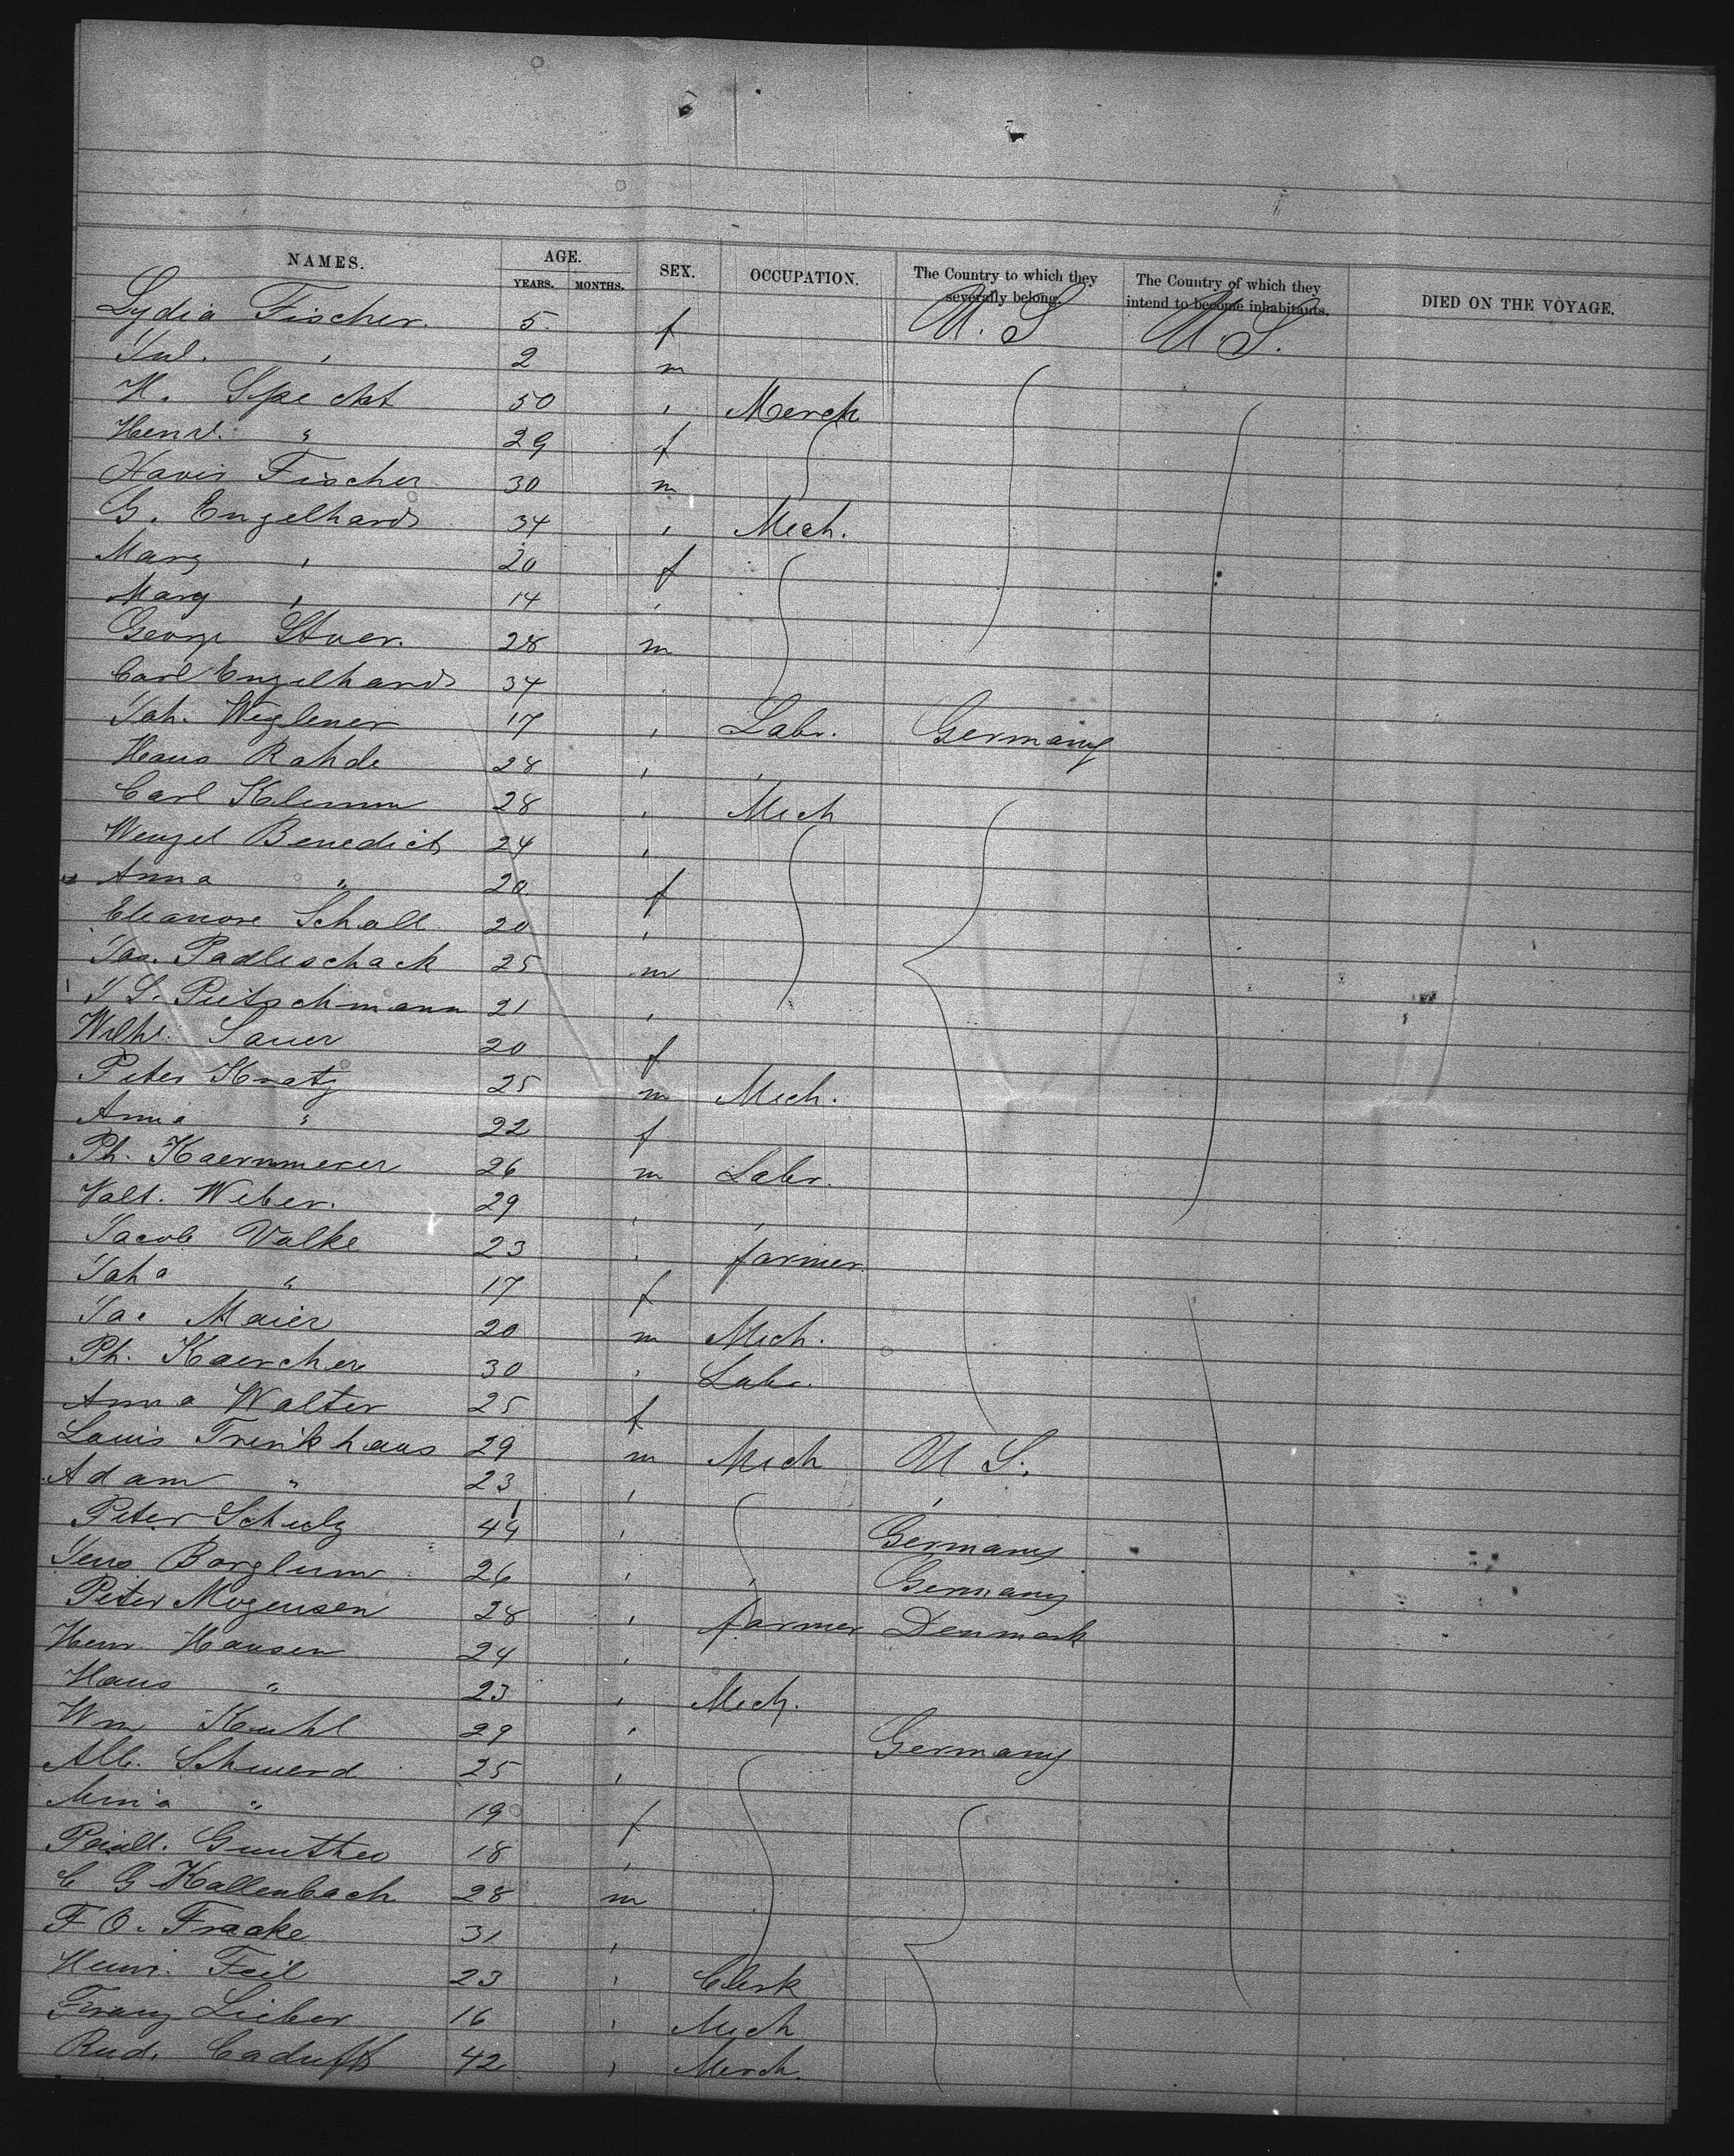 NAMES. AGE. SEX. OCCUPATION. The Country to which they severally belong. The Country of which they intend to become inhabitants. DIED ON THE VOYAGE.
YEARS. MONTHS.
Lydia Fischer. 5. f U. S U. S.
Jul. , 2 m
H. Specht 50 , Merch
Henr. " 29 f
Xavir Fischer 30 m
G. Engelhard 34 , Mech.
Marg , 20 f
Marg , 14 ,
George 28 m
Carl Engelhard 34 .
Joh. Weglener 17 , Labr. Germany
Hans Rahde 28 , ,
Carl Klemm 28 , Mech
Wenzel Benedict 24 ,
Anna " 20 f
Eleanore Scholl 20 ,
Jos. Padleschack 25 m
J S. Peitschmann 21 ,
Wilh. Sauer 20 f
Peter Kratz 25 m Mech.
Anna " 22 f
Ph. Kaemmerer 26 m Labr.
Valt. Weber. 29 , ,
Jacob Valke 23 . farmer
Joha " 17 f
Jac Maier 20 m Mech.
Ph. Kaercher 30 , Labr.
Anna Walter 25 f
Louis Trinkhaus 29 m Mech U S.
Adam " 23 , ,
Peter Schulz 44 , Germany
Jens Borglum 26 , , Germany
Peter Mogensen 28 , farmer Denmark
Henr. Hansen 24 ,
Hans " 23 , Mech.
Wm Kuhl 29 , Germany
Alb. Schwerd 25 ,
Mina " 19 f
Gunther 18 ,
C G Kallenbach 28 m
F O. Fracke 31 ,
Henr. Feil 23 , Clerk
Franz Lieber 16 , Mech
Rud. Caduff 42 , Merch.